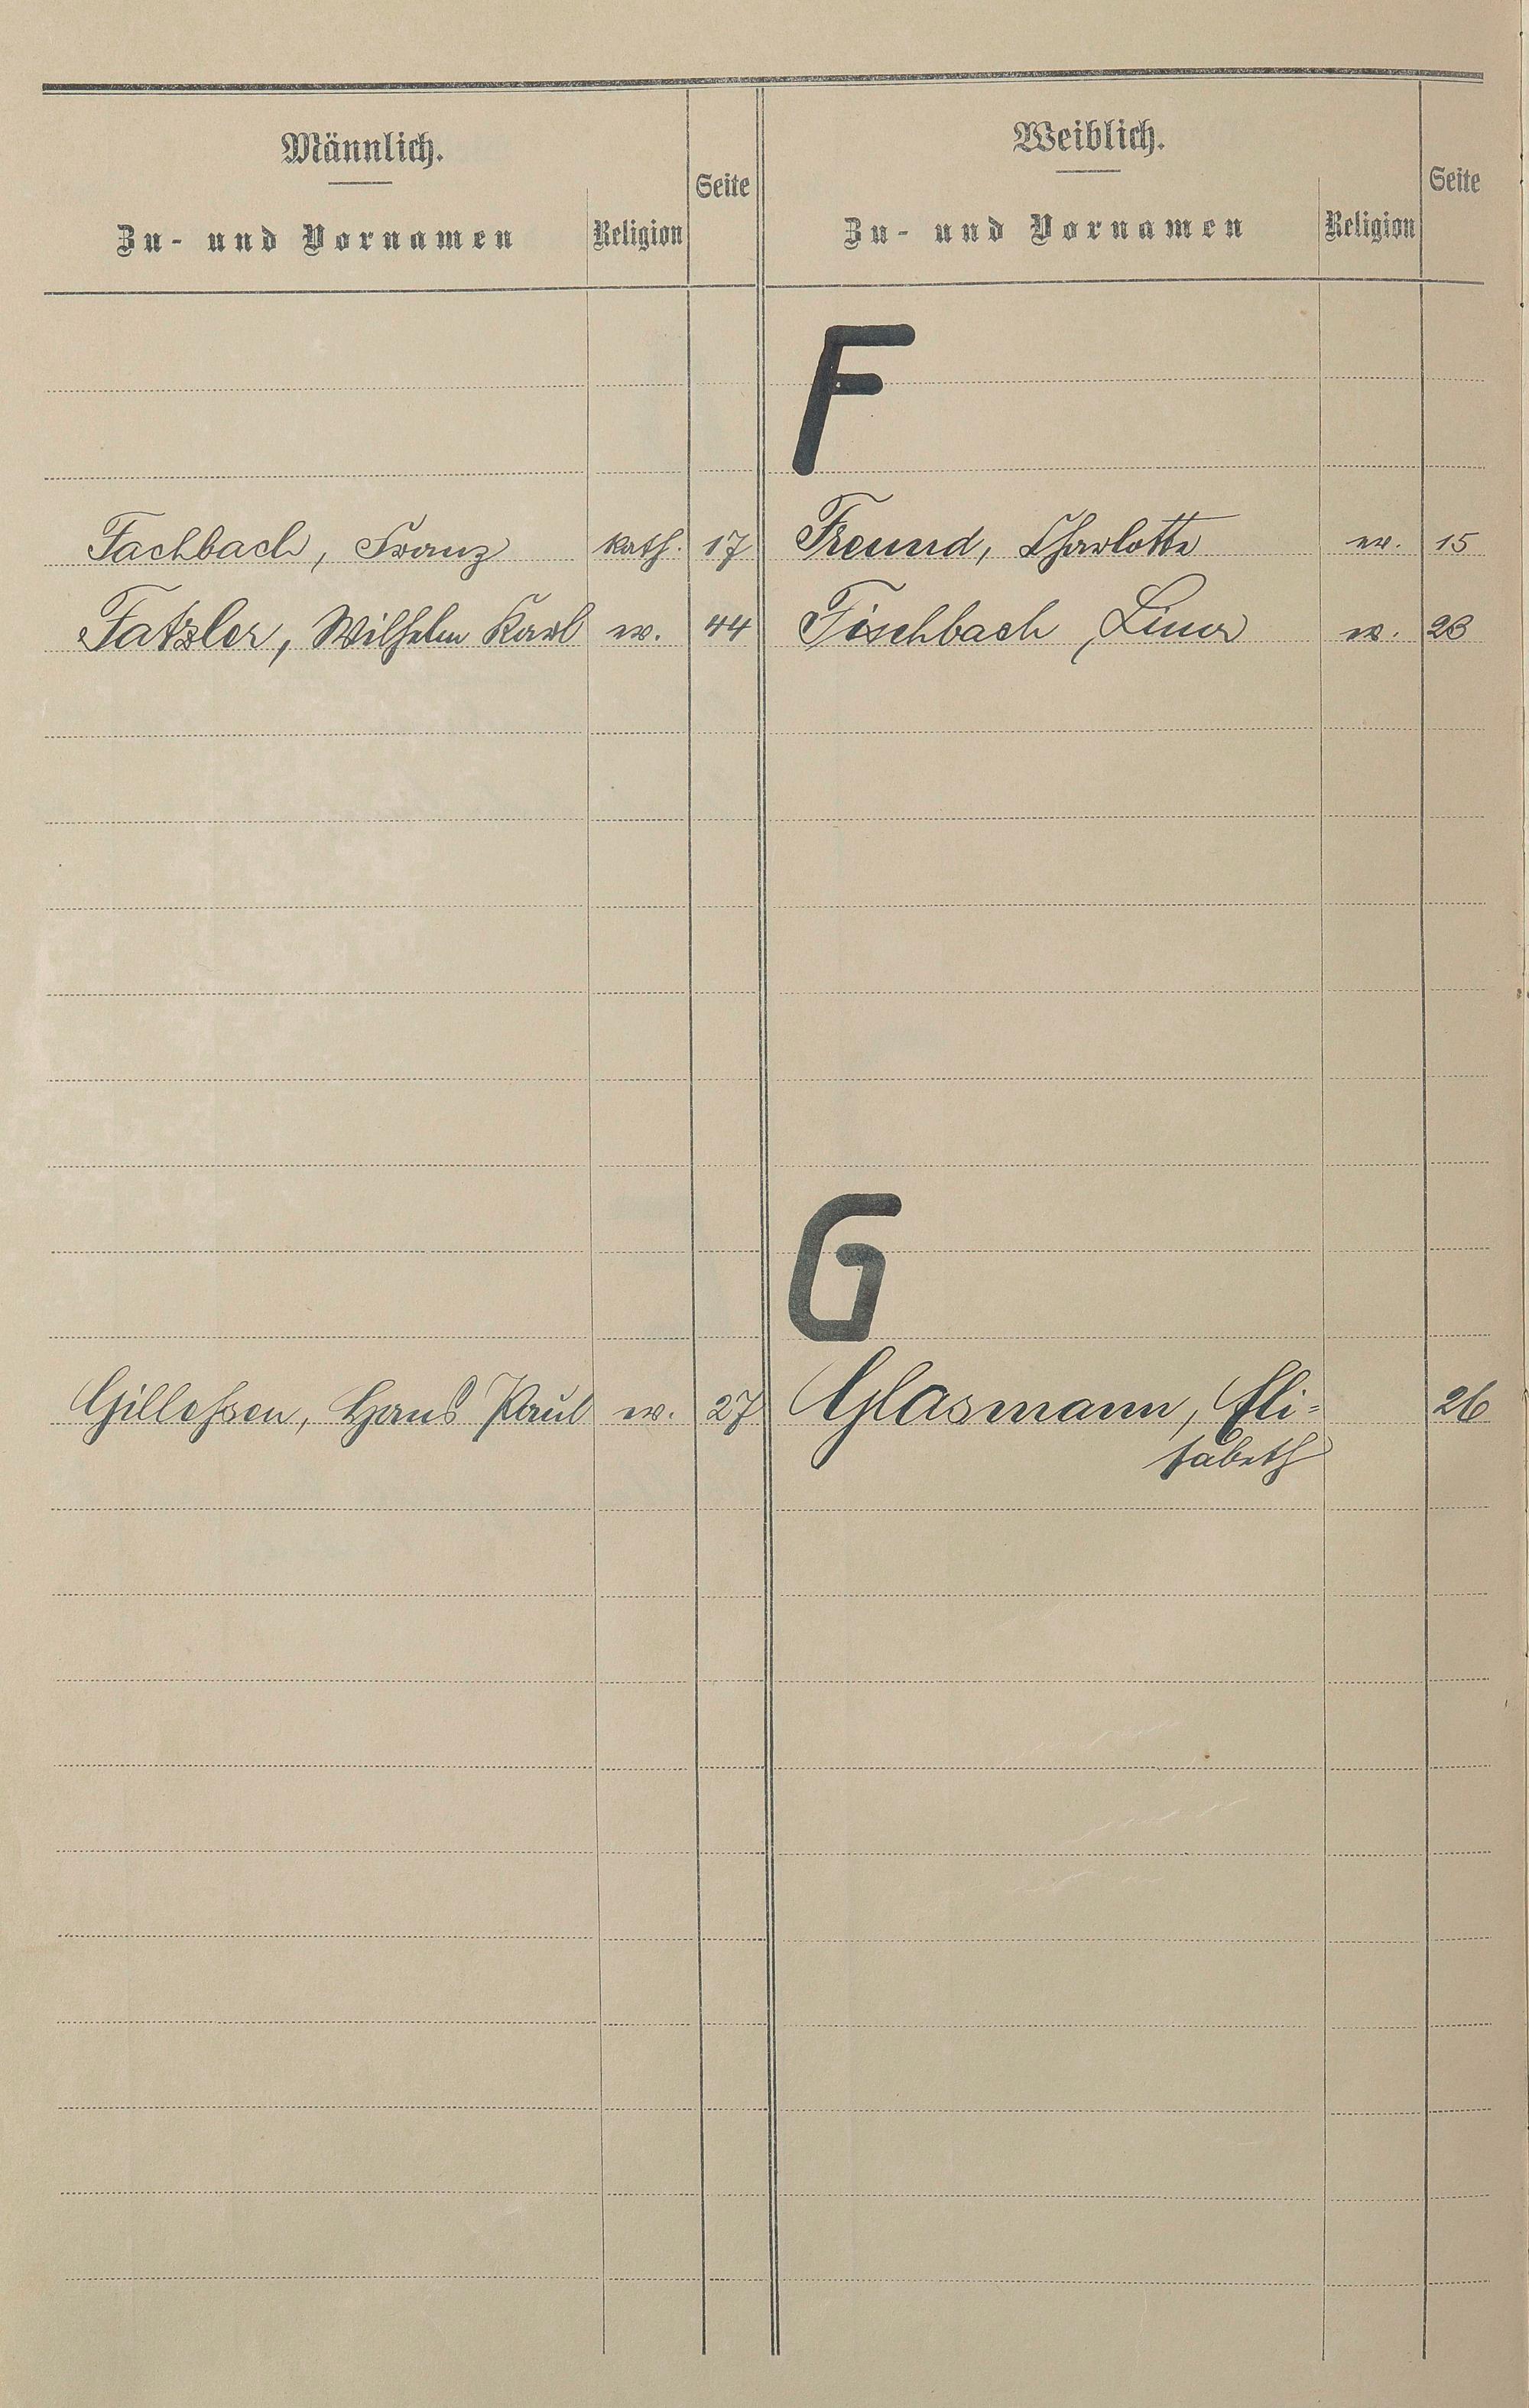 Männlich.
Zu- und Vornamen Religion Seite
Weiblich.
Zu- und Vornamen Religion Seite
F
Fachbach, Franz kath. 17 Freund, Charlotte ev. 15
Fatzler, Wilhelm Karl ev. 44 Fischbach, Lina ev. 23
G
Gillessen, Hans Paul ev. 27 Glasmann, Eli= 26
sabeth